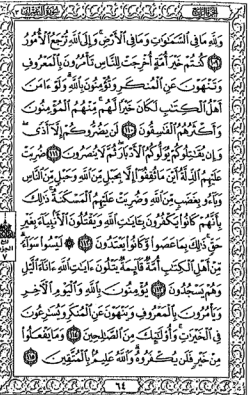 الجزء الرابع سورة آل عمران
وَلِلَّهِ مَا فِي السَّمَٰوَٰتِ وَمَا فِي الْأَرْضِ وَإِلَى اللَّهِ تُرْجَعُ الْأُمُورُ
١٠٩ كُنتُمْ خَيْرَ أُمَّةٍ أُخْرِجَتْ لِلنَّاسِ تَأْمُرُونَ بِالْمَعْرُوفِ
وَتَنْهَوْنَ عَنِ الْمُنكَرِ وَتُؤْمِنُونَ بِاللَّهِ وَلَوْ ءَامَنَ
أَهْلُ الْكِتَٰبِ لَكَانَ خَيْرًا لَّهُم مِّنْهُمُ الْمُؤْمِنُونَ
وَأَكْثَرُهُمُ الْفَٰسِقُونَ ١١٠ لَن يَضُرُّوكُمْ إِلَّا أَذًى
وَإِن يُقَٰتِلُوكُمْ يُوَلُّوكُمُ الْأَدْبَارَ ثُمَّ لَا يُنصَرُونَ ١١١ ضُرِبَتْ
عَلَيْهِمُ الذِّلَّةُ أَيْنَ مَا ثُقِفُوا إِلَّا بِحَبْلٍ مِّنَ اللَّهِ وَحَبْلٍ مِّنَ النَّاسِ
وَبَاءُو بِغَضَبٍ مِّنَ اللَّهِ وَضُرِبَتْ عَلَيْهِمُ الْمَسْكَنَةُ ذَٰلِكَ
بِأَنَّهُمْ كَانُوا يَكْفُرُونَ بِـَٔايَٰتِ اللَّهِ وَيَقْتُلُونَ الْأَنۢبِيَاءَ بِغَيْرِ
حَقٍّ ذَٰلِكَ بِمَا عَصَوا وَّكَانُوا يَعْتَدُونَ ١١٢ لَيْسُوا سَوَاءً
مِّنْ أَهْلِ الْكِتَٰبِ أُمَّةٌ قَائِمَةٌ يَتْلُونَ ءَايَٰتِ اللَّهِ ءَانَاءَ الَّيْلِ
وَهُمْ يَسْجُدُونَ ١١٣ يُؤْمِنُونَ بِاللَّهِ وَالْيَوْمِ الْءَاخِرِ
وَيَأْمُرُونَ بِالْمَعْرُوفِ وَيَنْهَوْنَ عَنِ الْمُنكَرِ وَيُسَٰرِعُونَ
فِي الْخَيْرَٰتِ وَأُولَٰئِكَ مِنَ الصَّٰلِحِينَ ١١٤ وَمَا يَفْعَلُوا
مِنْ خَيْرٍ فَلَن يُكْفَرُوهُ وَاللَّهُ عَلِيمٌۢ بِالْمُتَّقِينَ ١١٥
ربع
الحزب
٧
٦٤